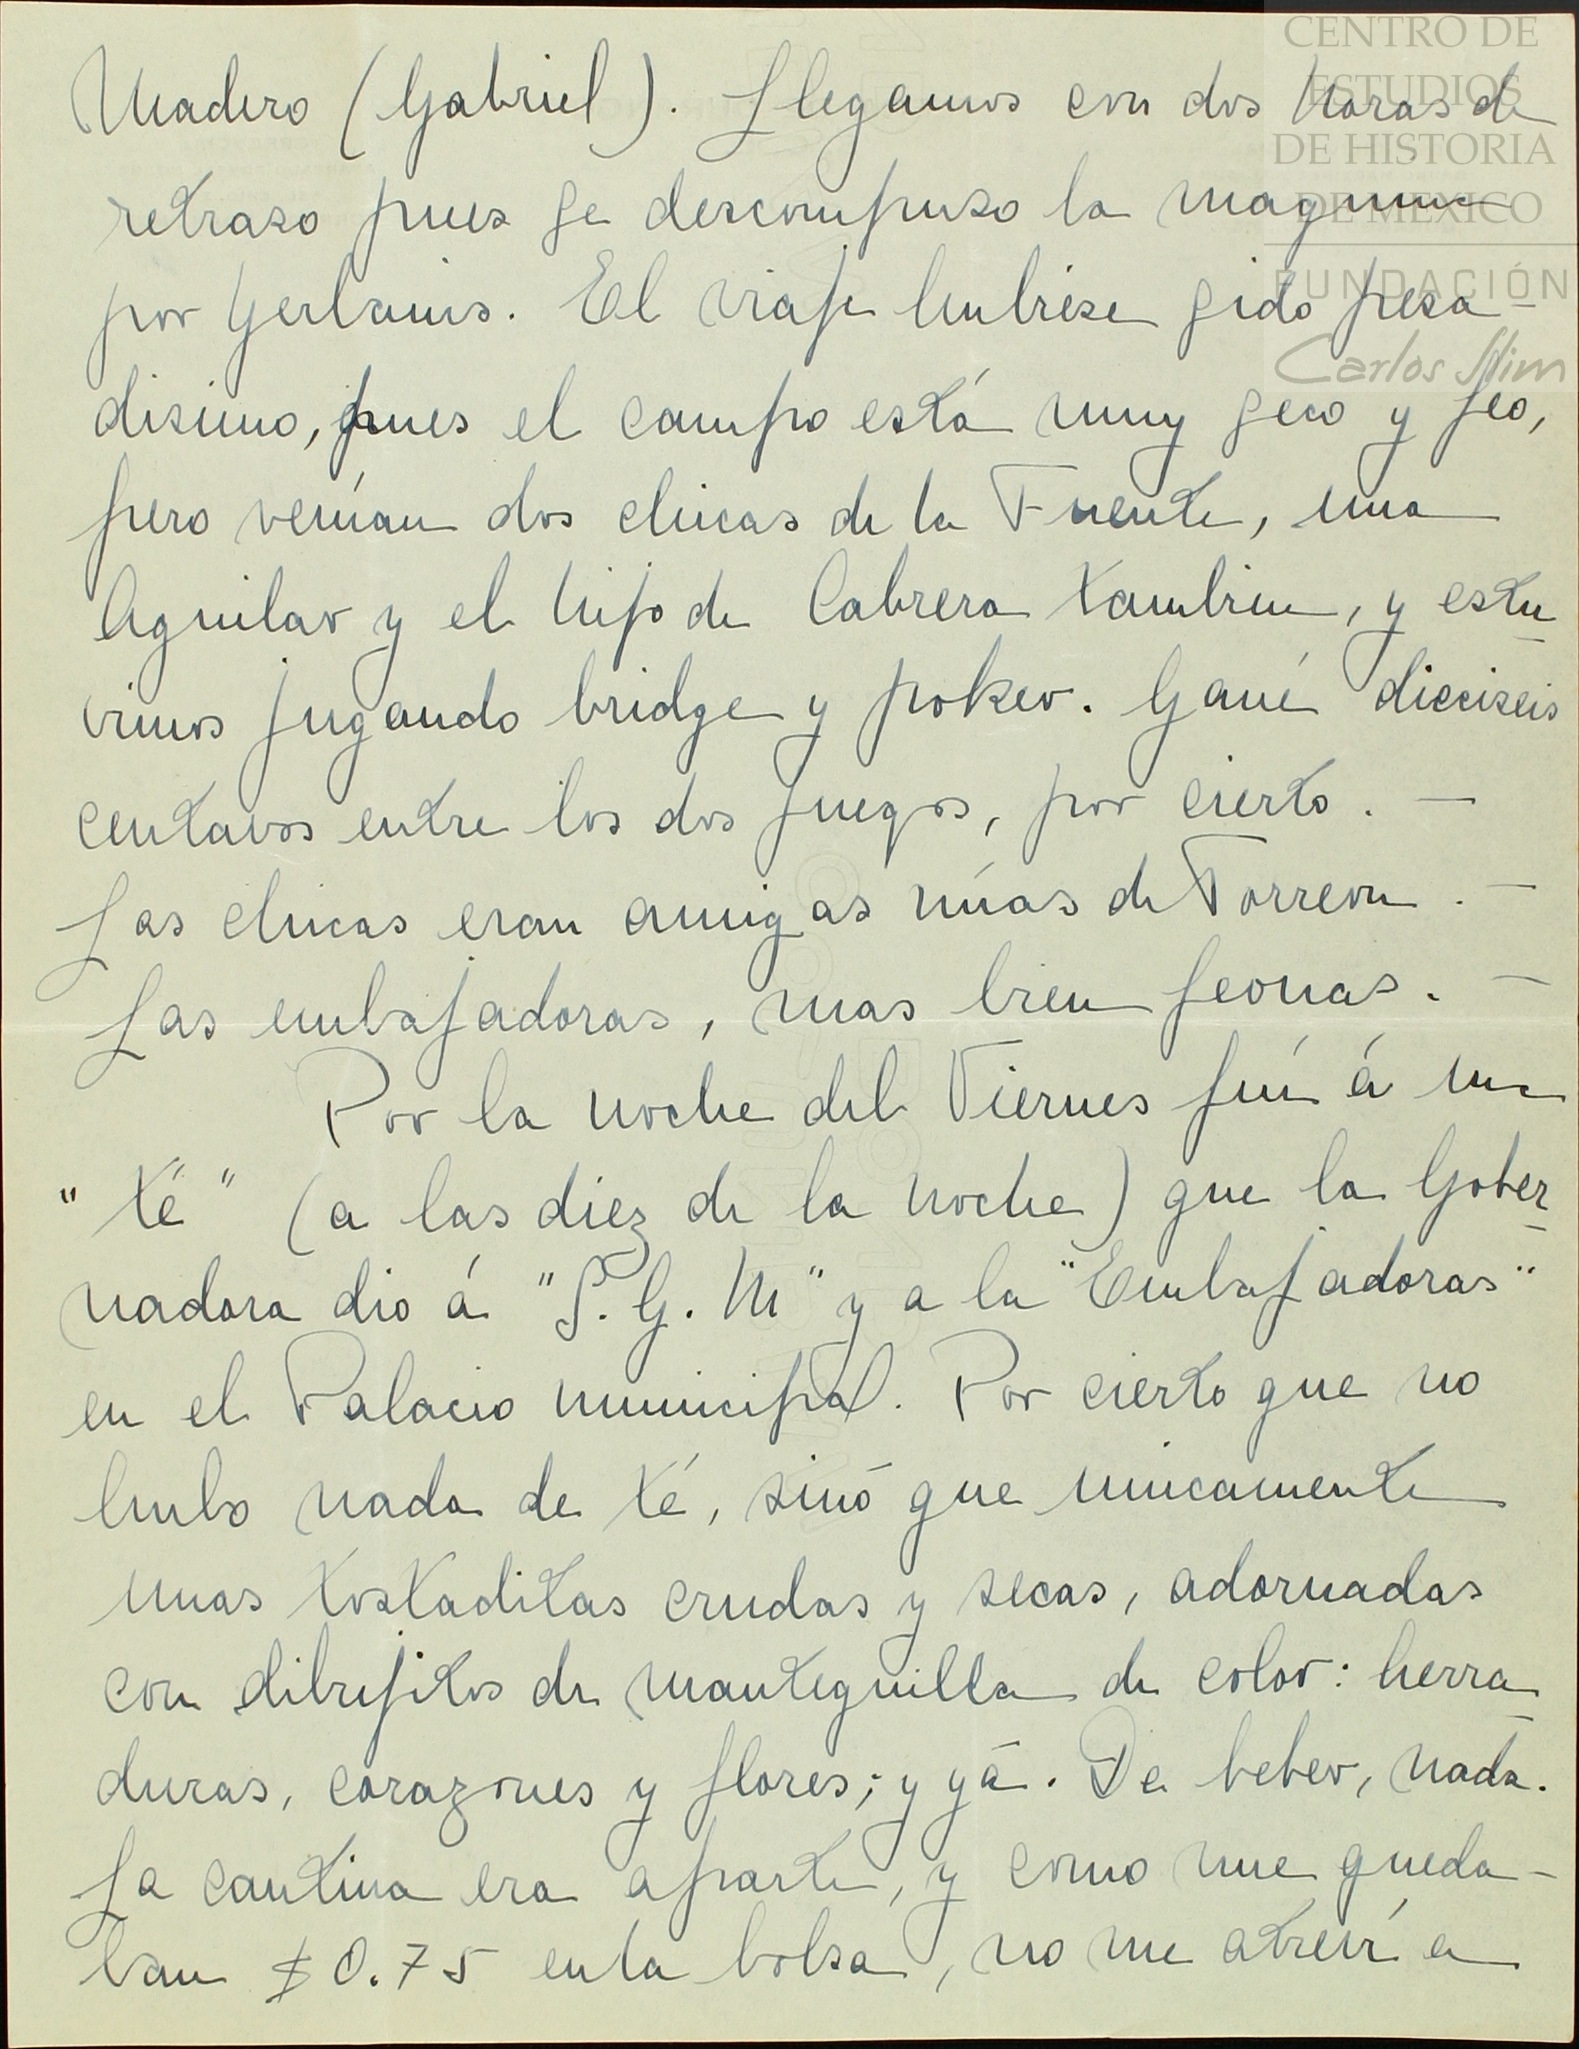 Madero (Gabriel). Llegamos con dos horas de
retraso pues se descompuso la maquina
por Gerlanis. El viaje hubiese sido pesa-
disimo, pues el campo está muy seco y feo,
pero venían dos chicas de la Fuente, una
Aguilar y el hijo de Cabrera tambien, y estu-
vimos jugando bridge y poker. Gané dieciseis
centavos entre los dos juegos, por cierto. —
Las chicas eran amigas mías de Torreon. —
Las embajadoras, mas bien feonas. —
Por la noche del Viernes fuí á un
"té" (a las diez de la noche) que la Gober-
nadora dio á "S. G. M" y a la "Embajadoras"
en el Palacio municipal. Por cierto que no
hubo nada de té, sinó que unicamente
unas tostaditas crudas y secas, adornadas
con dibujitos de mantequilla de color: herra-
duras, corazones y flores; y yá. De beber, nada.
La cantina era aparte, y como me queda-
ban $0.75 en la bolsa, no me atreví a
CENTRO DE
ESTUDIOS
DE HISTORIA
DE MEXICO
FUNDACIÓN
Carlos Slim